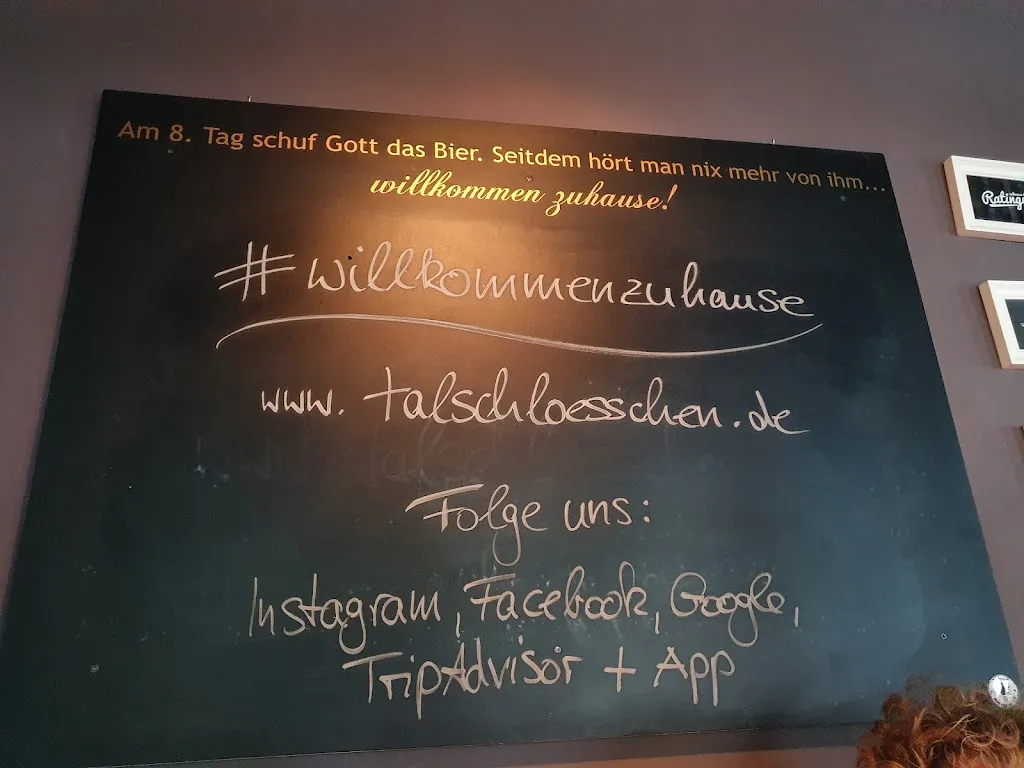 Am 8. Tag schuf Gott das Bier. Seitdem hört man nix mehr von ihm...
willkommen zuhause!
#willkommenzuhause
www.talschloesschen.de
Folge uns:
Instagram, Facebook, Google,
TripAdvisor + App